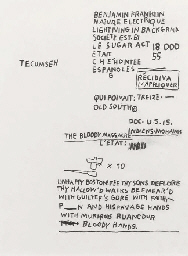 BENJAMIN FRANKLIN
NATURE ELECTRIQUE
LIGHTNING IN BACKGRND
SOCIETY EST.
LE SUGAR ACT 18 000
ETAIT 55
TECUMSEH
ESPAGNOLES
RECIDIVA
QUI POIVAIT: TREIZE
OLD SOUTH
DOC. U.S. 15.
THE BLOODY MASSACRE
L'ETAT:
X 10
UNHAPPY BOSTON! SEE THY SONS DEPLORE
THY HALLOW'D WALKS BESMEAR'D
WITH GUILTLESS GORE WITH
N AND HIS SAVAGE HANDS
WITH MURD'ROUS RANCOUR
BLOODY HANDS.